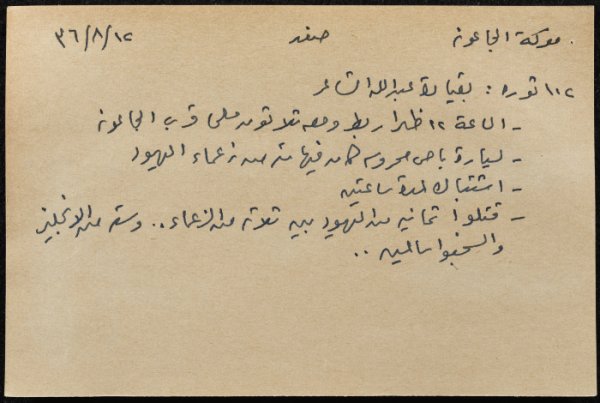 معركة الجاعونة صفد ٣٦/٨/١٢
١٠٢ ثورة : بقيادة عبدالله الشاعر
- الساعة ١٢ ظهرا ربط ومعه ثلاثون مسلحى قرب الجاعونة
- لسيارة باص محروسه كان فيها من زعماء اليهود
- اشتباك لمدة ساعتين
- قتلوا ثمانيه من اليهود بينهم ثلاثة من الزعماء .. وسته من الانجليز
وانسحبوا سالمين ..